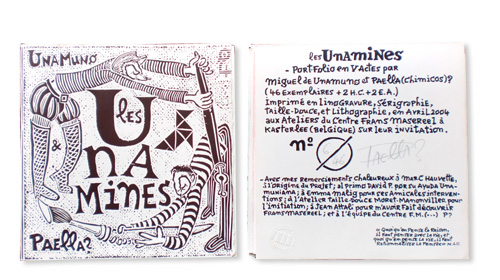 UnAMUNO
les
&
UnA
MINES
PAElla?
les UnAMINES
- PORTFOLIO en VActes par
Miguel de Unamuno et PAElla(chimicos)?
(46 exemplaires + 2 H.C. + 2 E.A.)
Imprimé en Linogravure, Sérigraphie,
Taille-Douce, et Lithographie, en Avril 2004
aux Ateliers du Centre FRANS MASEREEL à
KASTERLEE (Belgique) sur leur invitation.
nº
PAElla?
- Avec mes Remerciements chaleureux à MARC HAUVETTE,
à l'origine du Projet; al primo DAVID P. por su Ayuda Una-
muniana; à EMMA MATIG pour ses Amicales interven-
tions; à l'Atelier Taille-Douce MORET-MANONVILLER pour
l'initiation; à JEAN ATTALI pour m'avoir fait découvrir
FRANS MASEREEL; et à l'équipe du Centre F.M. (...) P?
Quoi qu'en pense la Raison,
il faut penser avec la vie, et
quoi qu'en pense la vie, il faut
Rationnaliser la Pensée